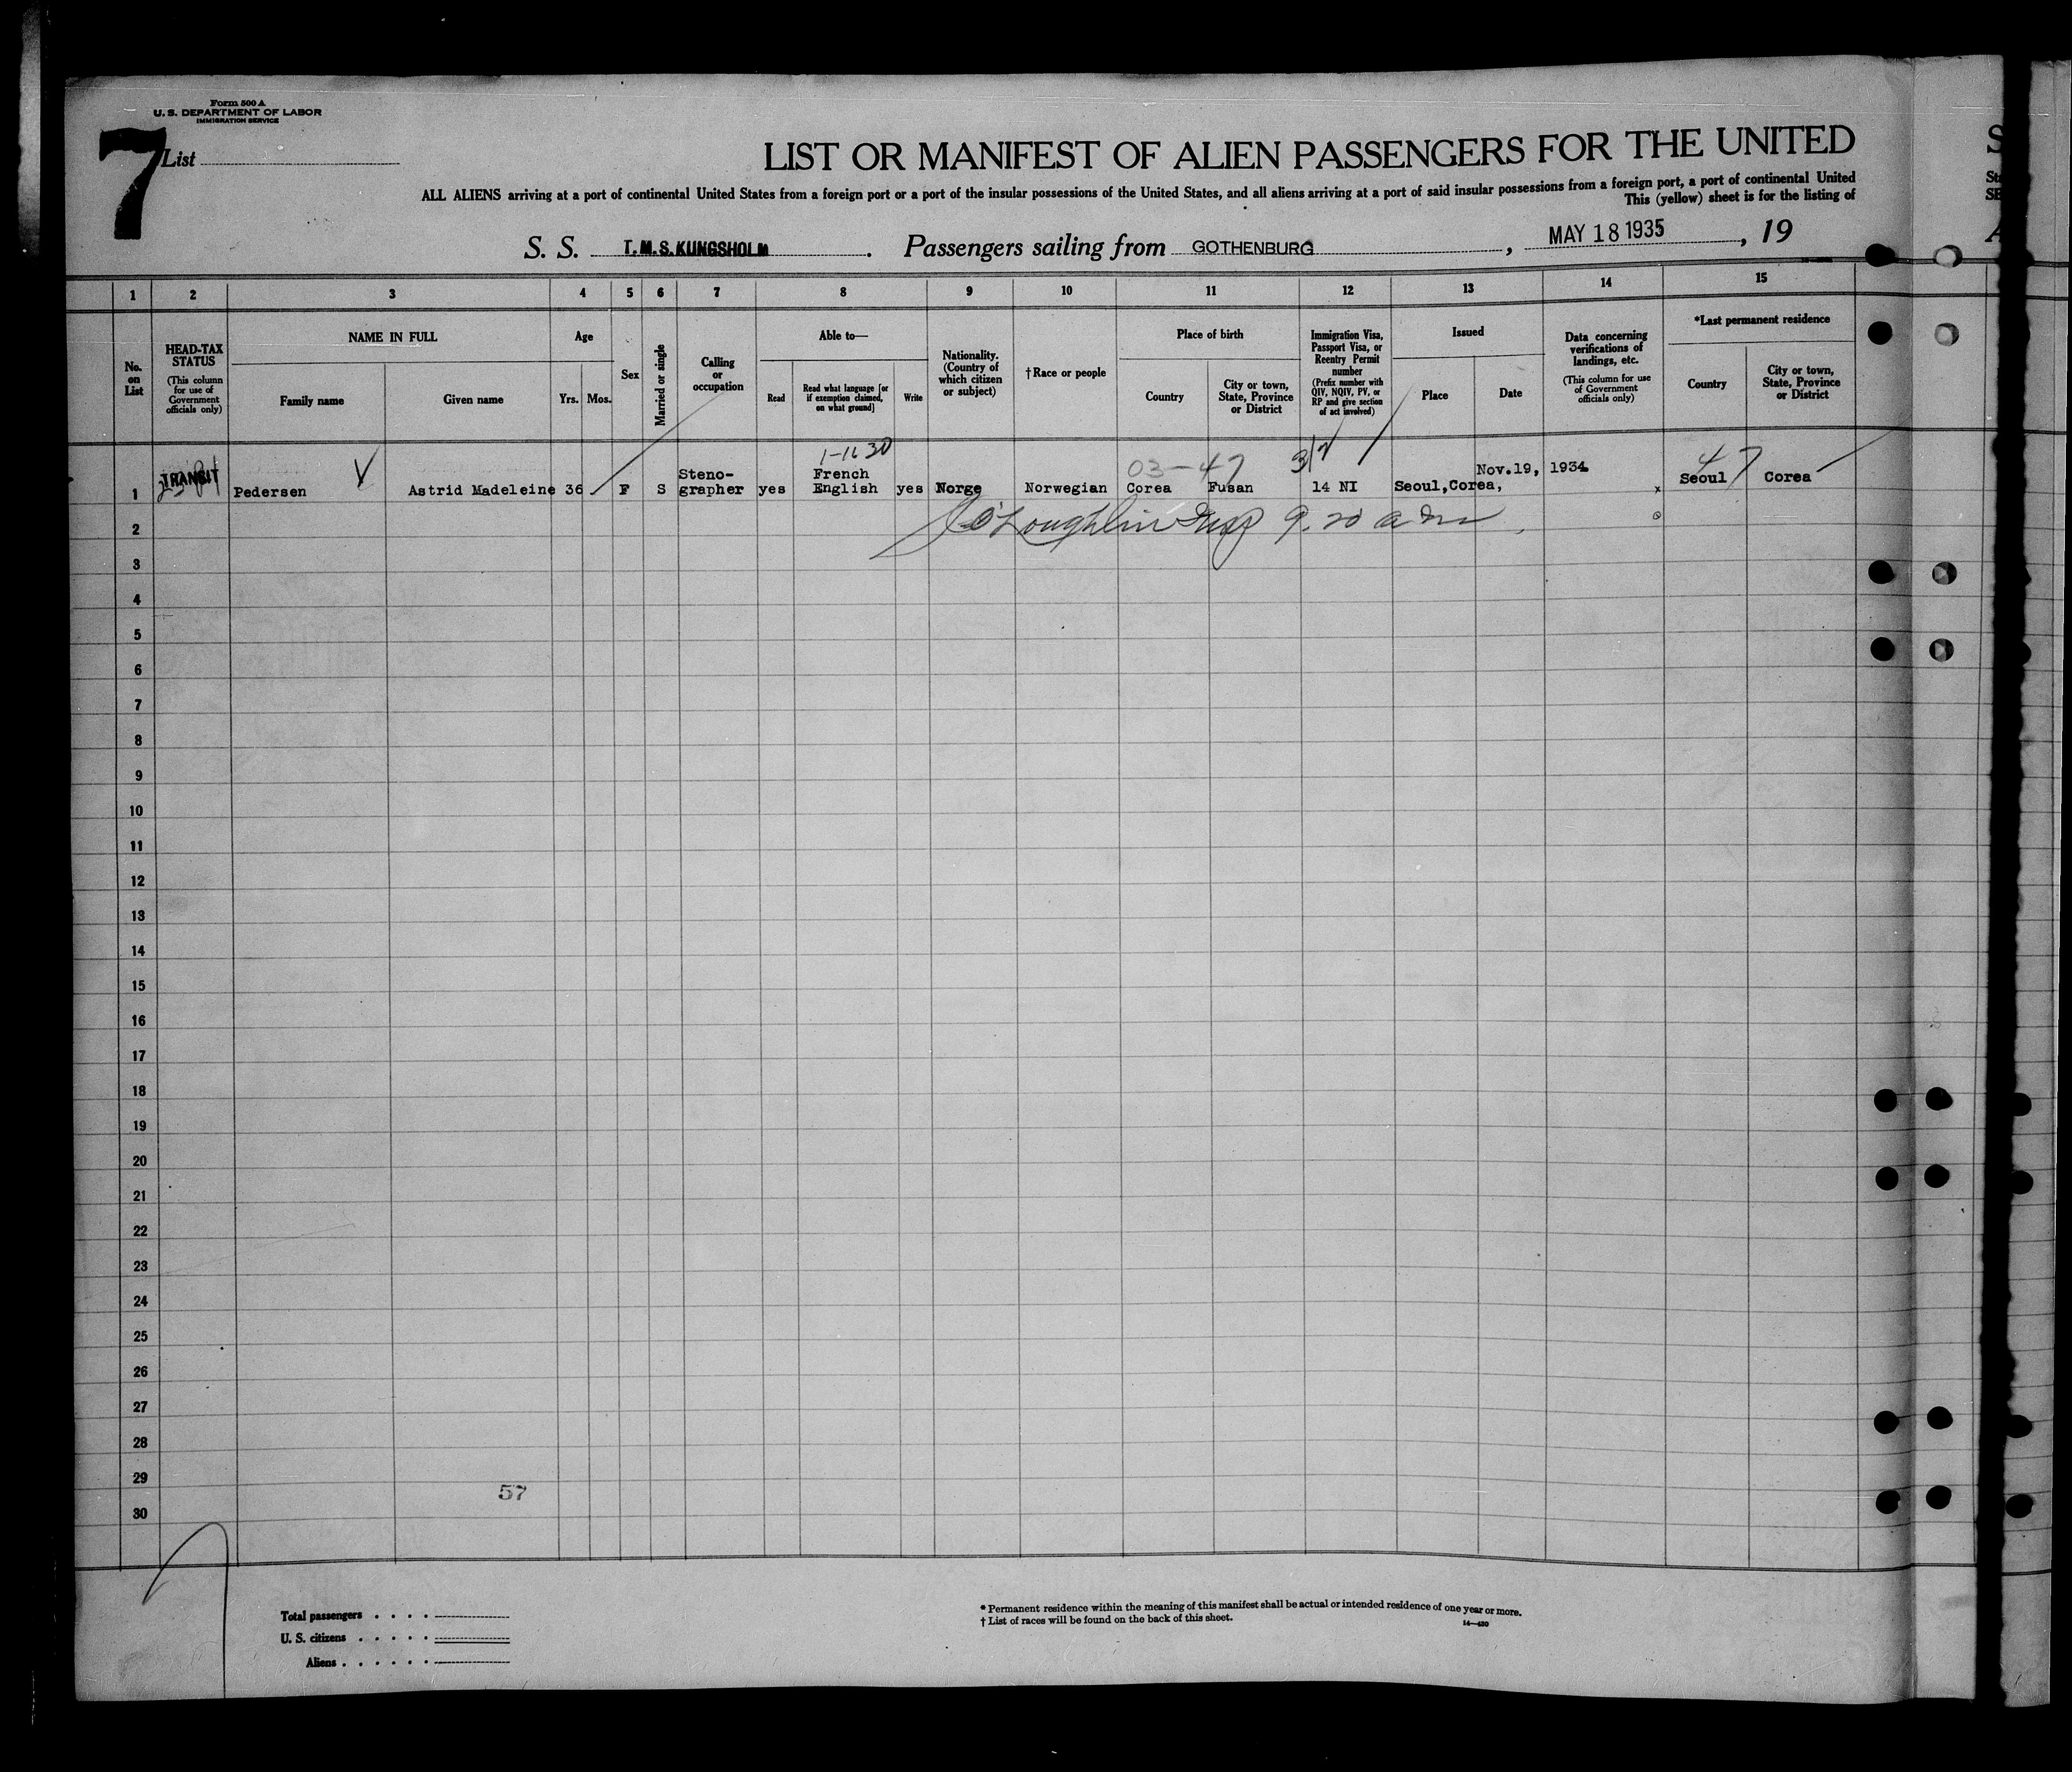 Form 500 A
U. S. DEPARTMENT OF LABOR
IMMIGRATION SERVICE
7 List
LIST OR MANIFEST OF ALIEN PASSENGERS FOR THE UNITED
ALL ALIENS arriving at a port of continental United States from a foreign port or a port of the insular possessions of the United States, and all aliens arriving at a port of said insular possessions from a foreign port, a port of continental United
This (yellow) sheet is for the listing of
S. S. T.M.S. KUNGSHOLM . Passengers sailing from GOTHENBURG , MAY 18 1935 , 19
1 2 3 4 5 6 7 8 9 10 11 12 13 14 15
No. on List
HEAD-TAX STATUS (This column for use of Government officials only)
NAME IN FULL
Family name
Given name
Age
Yrs. Mos.
Sex
Married or single
Calling or occupation
Able to—
Read
Read what language [or if exemption claimed, on what ground]
Write
Nationality. (Country of which citizen or subject)
†Race or people
Place of birth
Country
City or town, State, Province or District
Immigration Visa, Passport Visa, or Reentry Permit number (Prefix number with QIV, NQIV, PV, or RP and give section of act involved)
Issued
Place
Date
Data concerning verifications of landings, etc. (This column for use of Government officials only)
*Last permanent residence
Country
City or town, State, Province or District
03-47
47
1 TRANSIT Pedersen Astrid Madeleine 36 F S Steno-grapher yes French English yes Norge Norwegian Corea Fusan 14 NI Seoul,Corea, Nov.19, 1934 x Seoul Corea
2 O'Loughlin Insp 9.20 a m
3
4
5
6
7
8
9
10
11
12
13
14
15
16
17
18
19
20
21
22
23
24
25
26
27
28
29
57
30
Total passengers . . . .
U. S. citizens . . . . .
Aliens . . . . . .
* Permanent residence within the meaning of this manifest shall be actual or intended residence of one year or more.
† List of races will be found on the back of this sheet.
14—430